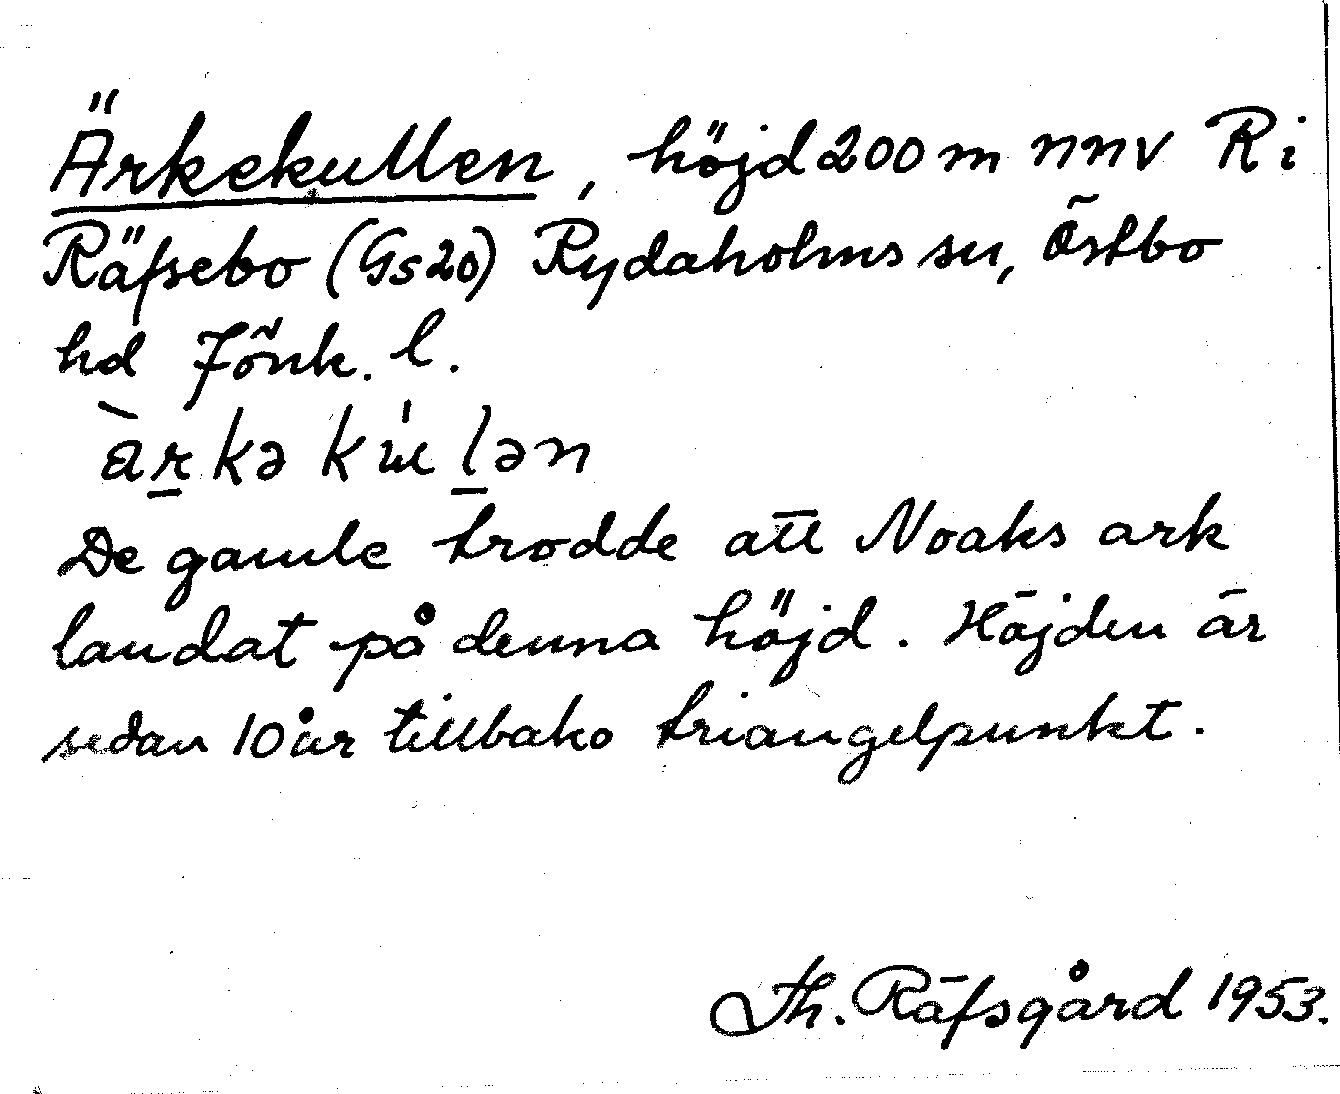 Ärkekullen, höjd 200 m nnv R i
Räfsebo (Gs20) Rydaholms sn, Östbo
hd Jönk. l.
àrkə kɯ́lən
De gamle trodde att Noaks ark
landat på denna höjd. Höjden är
sedan 10 år tillbako triangelpunkt.
Th. Räfsgård 1953.